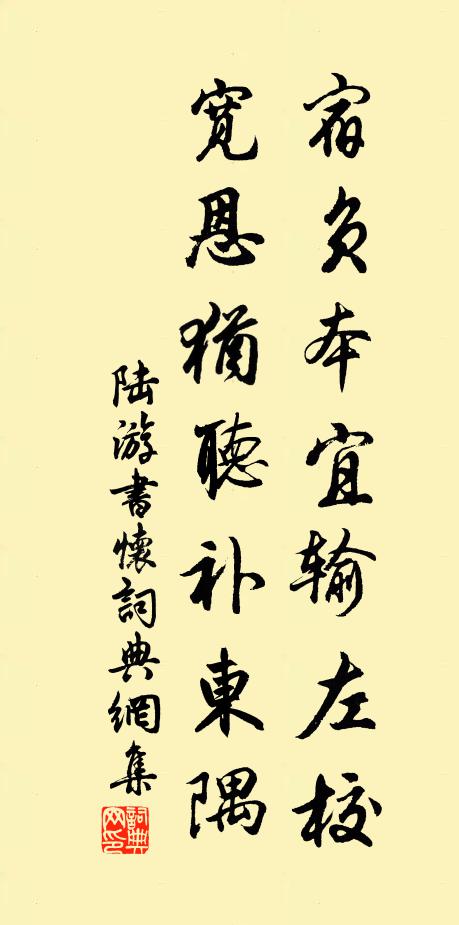 宿负本宜输左校
寛恩猶聽补東隅
陆游書懷詞典網集
詞典网印